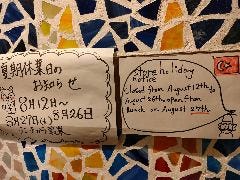 夏期休業日の
お知らせ
8月12日〜
8月26日
8月27日(火)
ランチから営業
store holiday
notice
closed from August 12th to
August 26th. open from
Lunch on August 27th